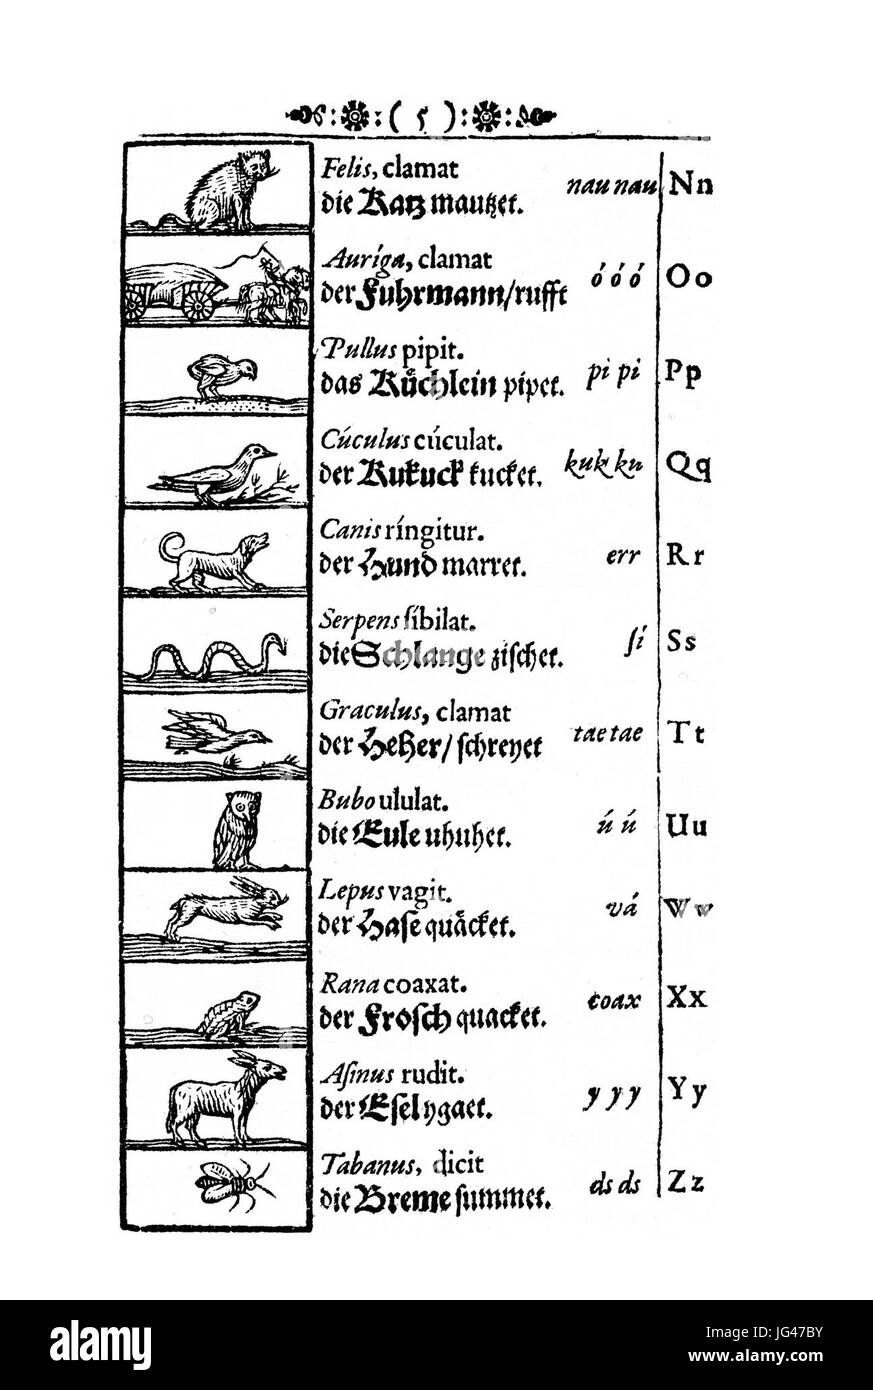 ( 5 )
Felis, clamat nau nau Nn
die Katz mautzet.
Auríga, clamat ó ó ó Oo
der Fuhrmann/rufft
Pullus pipit. pi pi Pp
das Küchlein pipet.
Cúculus cúculat. kuk ku Qq
der Kukuck kucket.
Canis ríngitur. err Rr
der Hund marret.
Serpens síbilat. sí Ss
die Schlange zischet.
Graculus, clamat tae tae Tt
der Heher/ schreyet
Bubo ululat. ú ú Uu
die Eule uhuhet.
Lepus vagit. vá Ww
der Hase quäcket.
Rana coaxat. coax Xx
der Frosch quacket.
Asinus rudit. y y y Yy
der Esel ygaet.
Tabanus, dicit ds ds Zz
die Breme summet.
alamy
alamy
Image ID: JG47BY
www.alamy.com